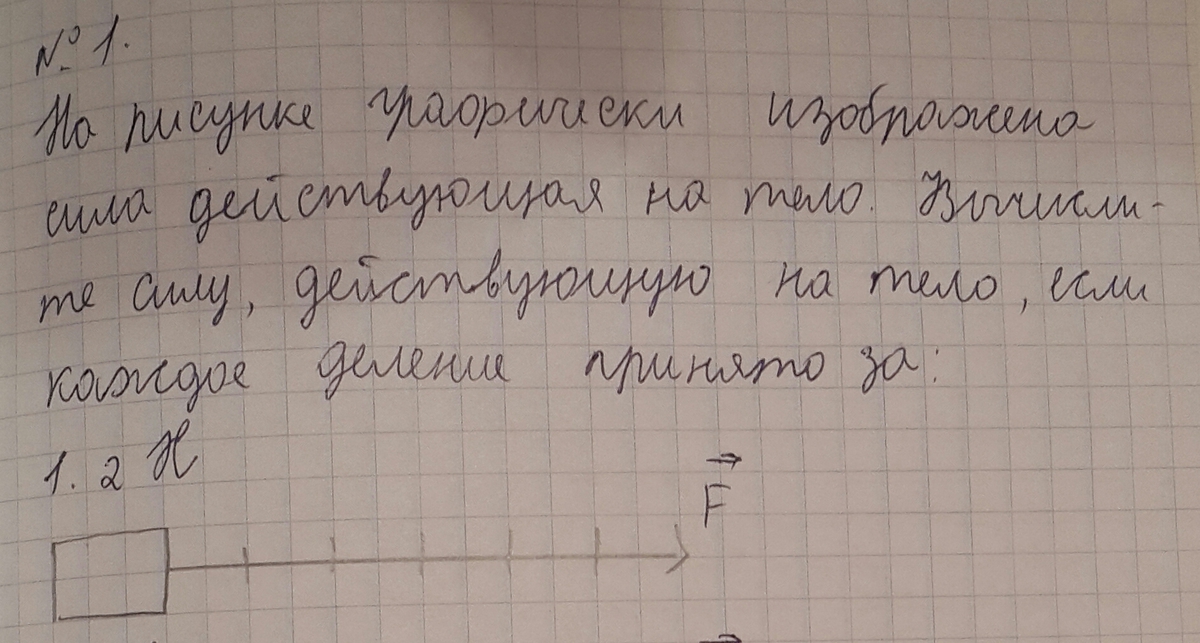 № 1.
На рисунке графически изображена
сила действующая на тело. Вычисли-
те силу, действующую на тело, если
каждое деление принято за:
1. 2 Н
F